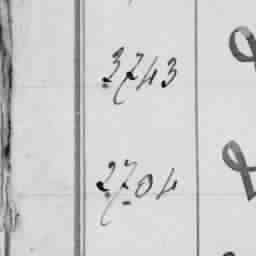 3743
2704